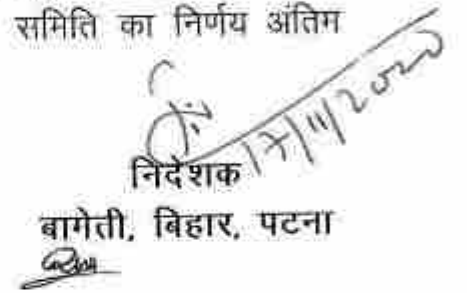 समिति का निर्णय अंतिम
17/11/2020
निदेशक
बामेती, बिहार, पटना